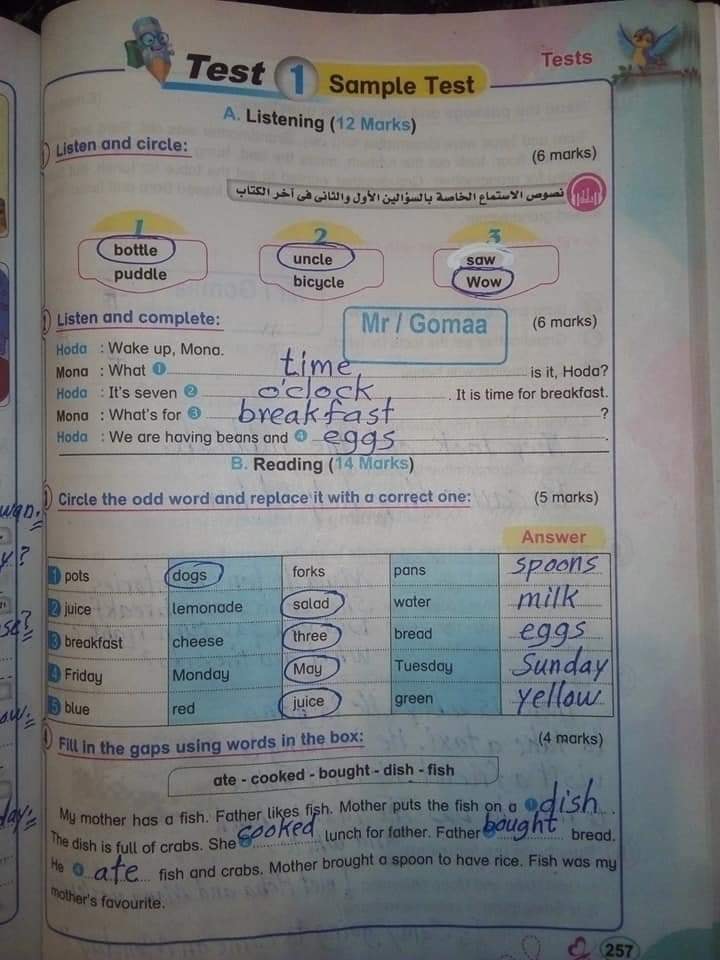 Tests
Test 1 Sample Test
A. Listening (12 Marks)
Listen and circle: (6 marks)
نصوص الاستماع الخاصة بالسؤالين الأول والثانى فى آخر الكتاب
1 2 3
bottle uncle saw
puddle bicycle Wow
Listen and complete: (6 marks)
Mr / Gomaa
Hoda : Wake up, Mona.
Mona : What 1 time is it, Hoda?
Hoda : It's seven 2 o'clock. It is time for breakfast.
Mona : What's for 3 breakfast?
Hoda : We are having beans and 4 eggs.
B. Reading (14 Marks)
Circle the odd word and replace it with a correct one: (5 marks)
Answer
1 pots dogs forks pans spoons
2 juice lemonade salad water milk
3 breakfast cheese three bread eggs
4 Friday Monday May Tuesday Sunday
5 blue red juice green yellow
Fill in the gaps using words in the box: (4 marks)
ate - cooked - bought - dish - fish
My mother has a fish. Father likes fish. Mother puts the fish on a 1 dish.
The dish is full of crabs. She 2 cooked lunch for father. Father 3 bought bread.
He 4 ate fish and crabs. Mother brought a spoon to have rice. Fish was my
mother's favourite.
257